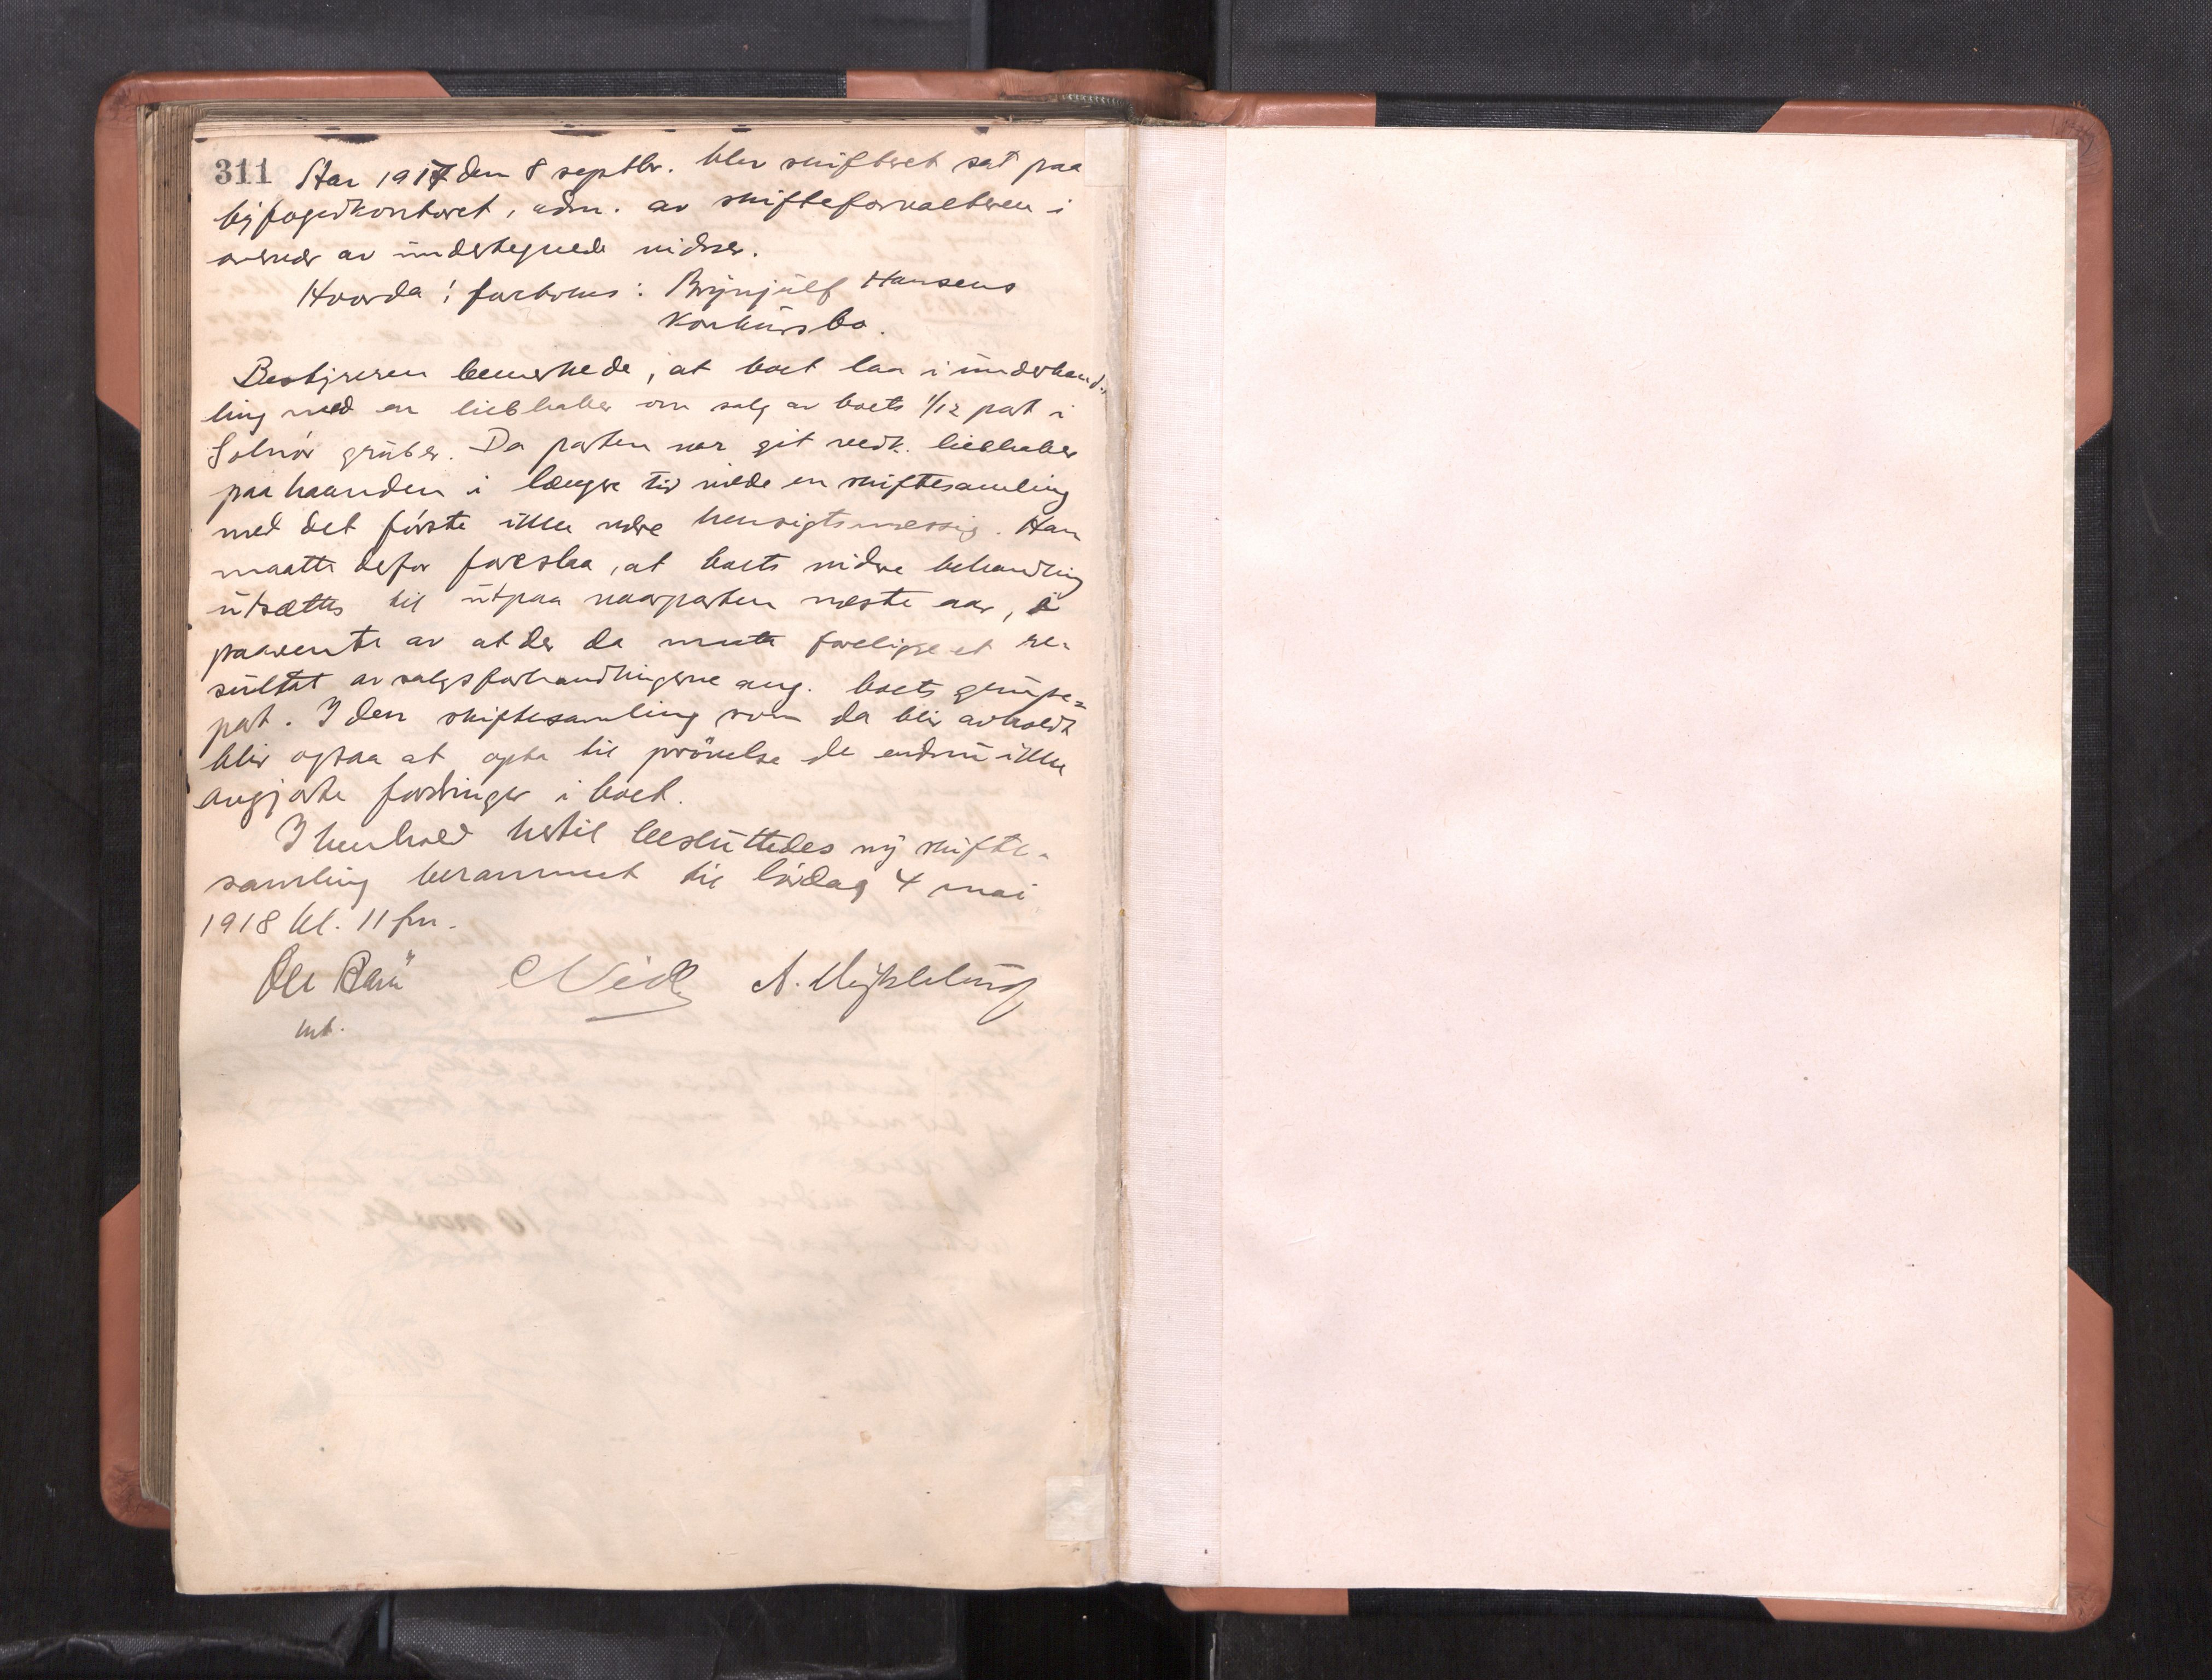 311 Aar 1917 den 8 septbr. blev skifteret sat paa
byfogedkontoret, adm. av skifteforvalteren i
overvær av undertegnede vidner.
Hvorda: foretoges: Brynjulf Hansens
konkursbo.
Bestyreren bemerkede, at boet laa i underhand-
ling med en liebhaber om salg av boets 1/12 part i
gruber. Da parten var git vedk. liebhaber
paa haanden i længre tid vilde en skiftesamling
med det første ikke være hensigtsmessig. Han
maatte derfor foreslaa, at boets videre behandling
utsættes til utpaa vaarparten næste aar, i
paavente av at der da maatte foreligge et re-
sultat av salgsforhandlingerne ang. boets grube-
part. I den skiftesamling som da blir avholdt
blir ogsaa at opta til prøvelse de endnu ikke
avgjorte fordringer i boet.
I henhold hertil besluttedes ny skifte-
samling berammet til lørdag 4 mai
1918 kl. 11 fm.